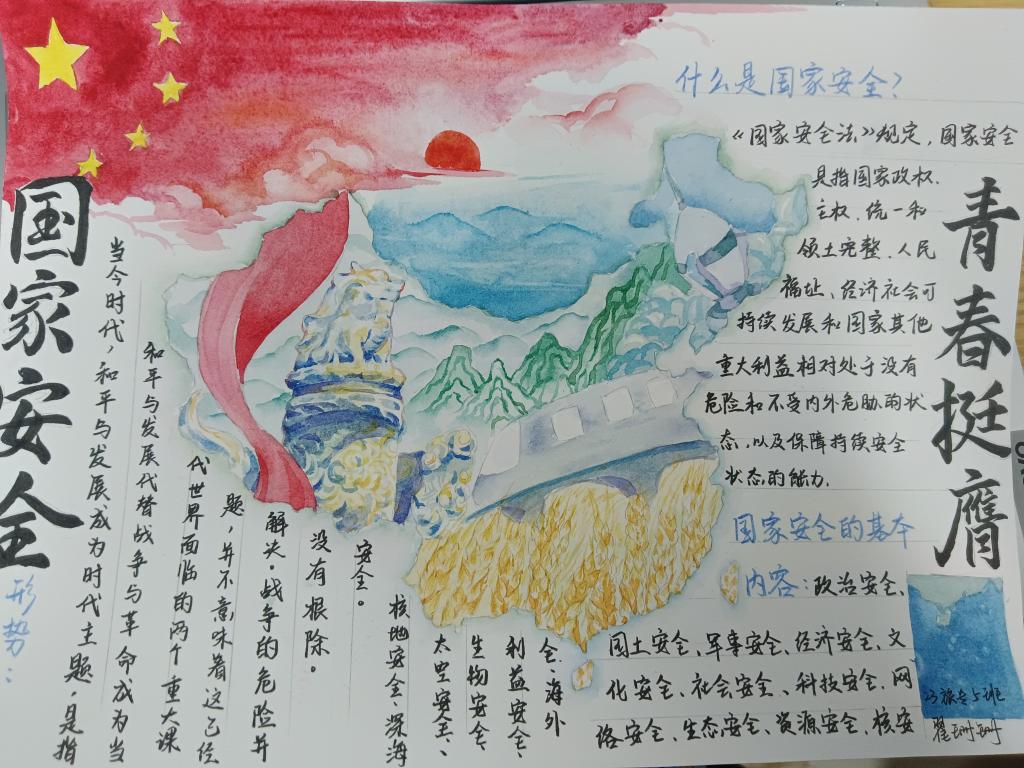 国家安全
形势：
当今时代，和平与发展成为时代主题，是指
和平与发展代替战争与革命成为当
代世界面临的两个重大课
题，并不意味着这已经
解决。战争的危险并
没有根除。
什么是国家安全？
《国家安全法》规定，国家安全
是指国家政权.
主权、统一和
领土完整、人民
福址、经济社会可
持续发展和国家其他
重大利益相对处于没有
危险和不受内外危胁的状
态，以及保障持续安全
状态的能力.
国家安全的基本
内容：政治安全、
国土安全、军事安全、经济安全、文
化安全、社会安全、科技安全、网
络安全、生态安全、资源安全、核安
全、海外
利益安全、
生物安全、
太空安全、
核地安全、深海
安全。
青春挺膺
23旅专5班
翟珊珊